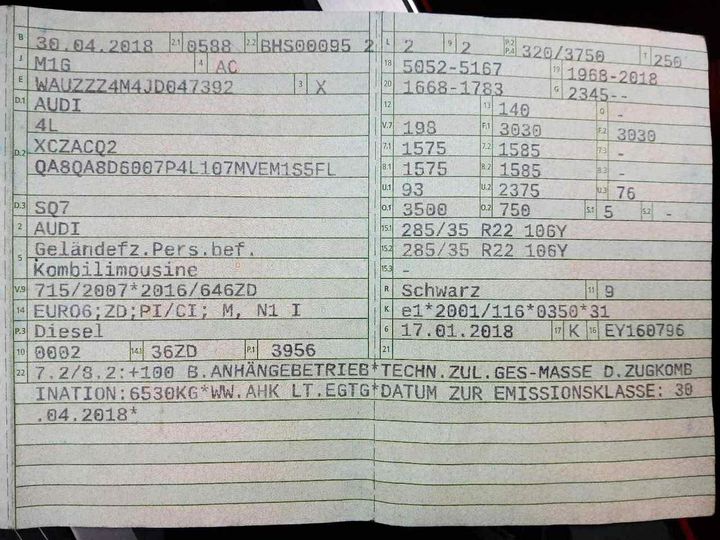 B 30.04.2018 2.1 0588 2.2 BHS00095 2
J M1G 4 AC
E WAUZZZ4M4JD047392 3 X
D.1 AUDI
4L
D.2 XCZACQ2
QA8QA8D6007P4L107MVEM1S5FL
D.3 SQ7
2 AUDI
5 Geländefz.Pers.bef.
Kombilimousine
V.9 715/2007*2016/646ZD
14 EURO6;ZD;PI/CI; M, N1 I
P.3 Diesel
10 0002 14.1 36ZD P.1 3956
L 2 9 2 P.2 P.4 320/3750 T 250
18 5052-5167 19 1968-2018
20 1668-1783 G 2345--
12 13 140 Q -
V.7 198 F.1 3030 F.2 3030
7.1 1575 7.2 1585 7.3 -
8.1 1575 8.2 1585 8.3 -
U.1 93 U.2 2375 U.3 76
O.1 3500 O.2 750 S.1 5 S.2 -
15.1 285/35 R22 106Y
15.2 285/35 R22 106Y
15.3 -
R Schwarz 11 9
K e1*2001/116*0350*31
6 17.01.2018 17 K 16 EY160796
21
22 7.2/8.2:+100 B.ANHÄNGEBETRIEB*TECHN.ZUL.GES-MASSE D.ZUGKOMB
INATION:6530KG*WW.AHK LT.EGTG*DATUM ZUR EMISSIONSKLASSE: 30
.04.2018*